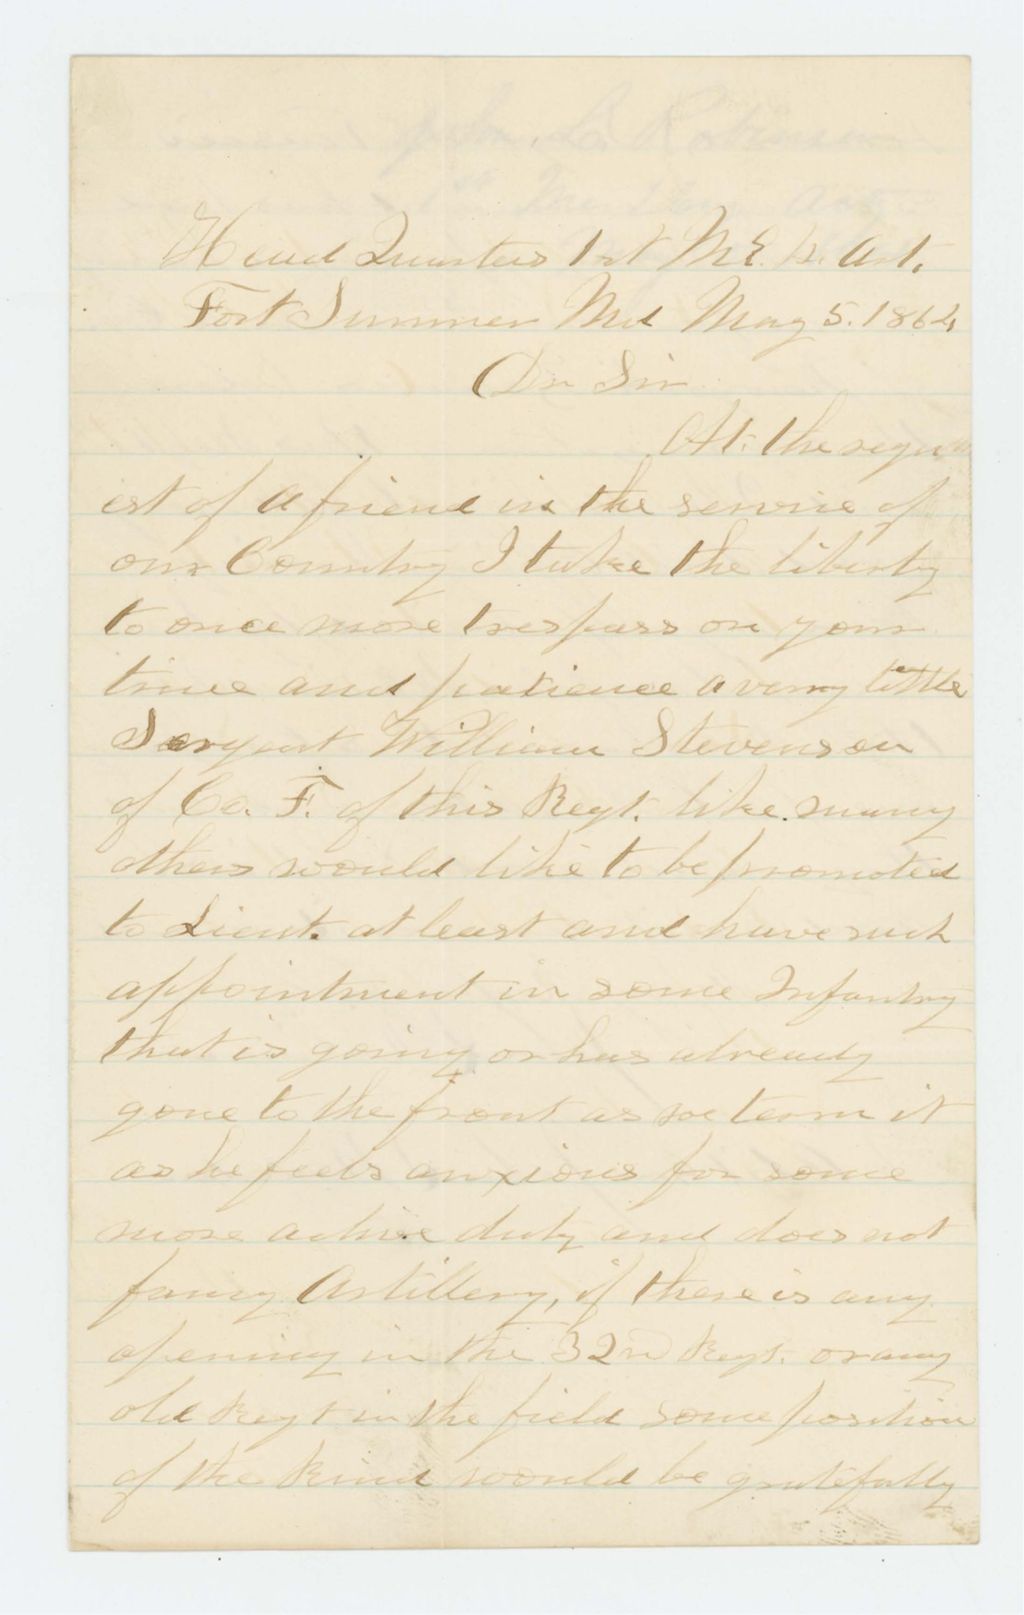 Head Quarters 1st M.E. H. Art.
Fort Sumner Md May 5. 1864
Dr Sir
At. the requ
est of a friend in the service of
our Country I take the liberty
to once more trespass on your
time and patience a very little
Sergeant William Stevenson
of Co. F. of this Regt. like many
others would like to be promoted
to Lieut. at least and have such
appointment in some Infantry
that is going or has already
gone to the front as we term it
as he feels anxious for some
more active duty and does not
fancy Artillery, if there is any
opening in the 32nd Regt. or any
old Regt in the field some position
of the kind would be gratefully